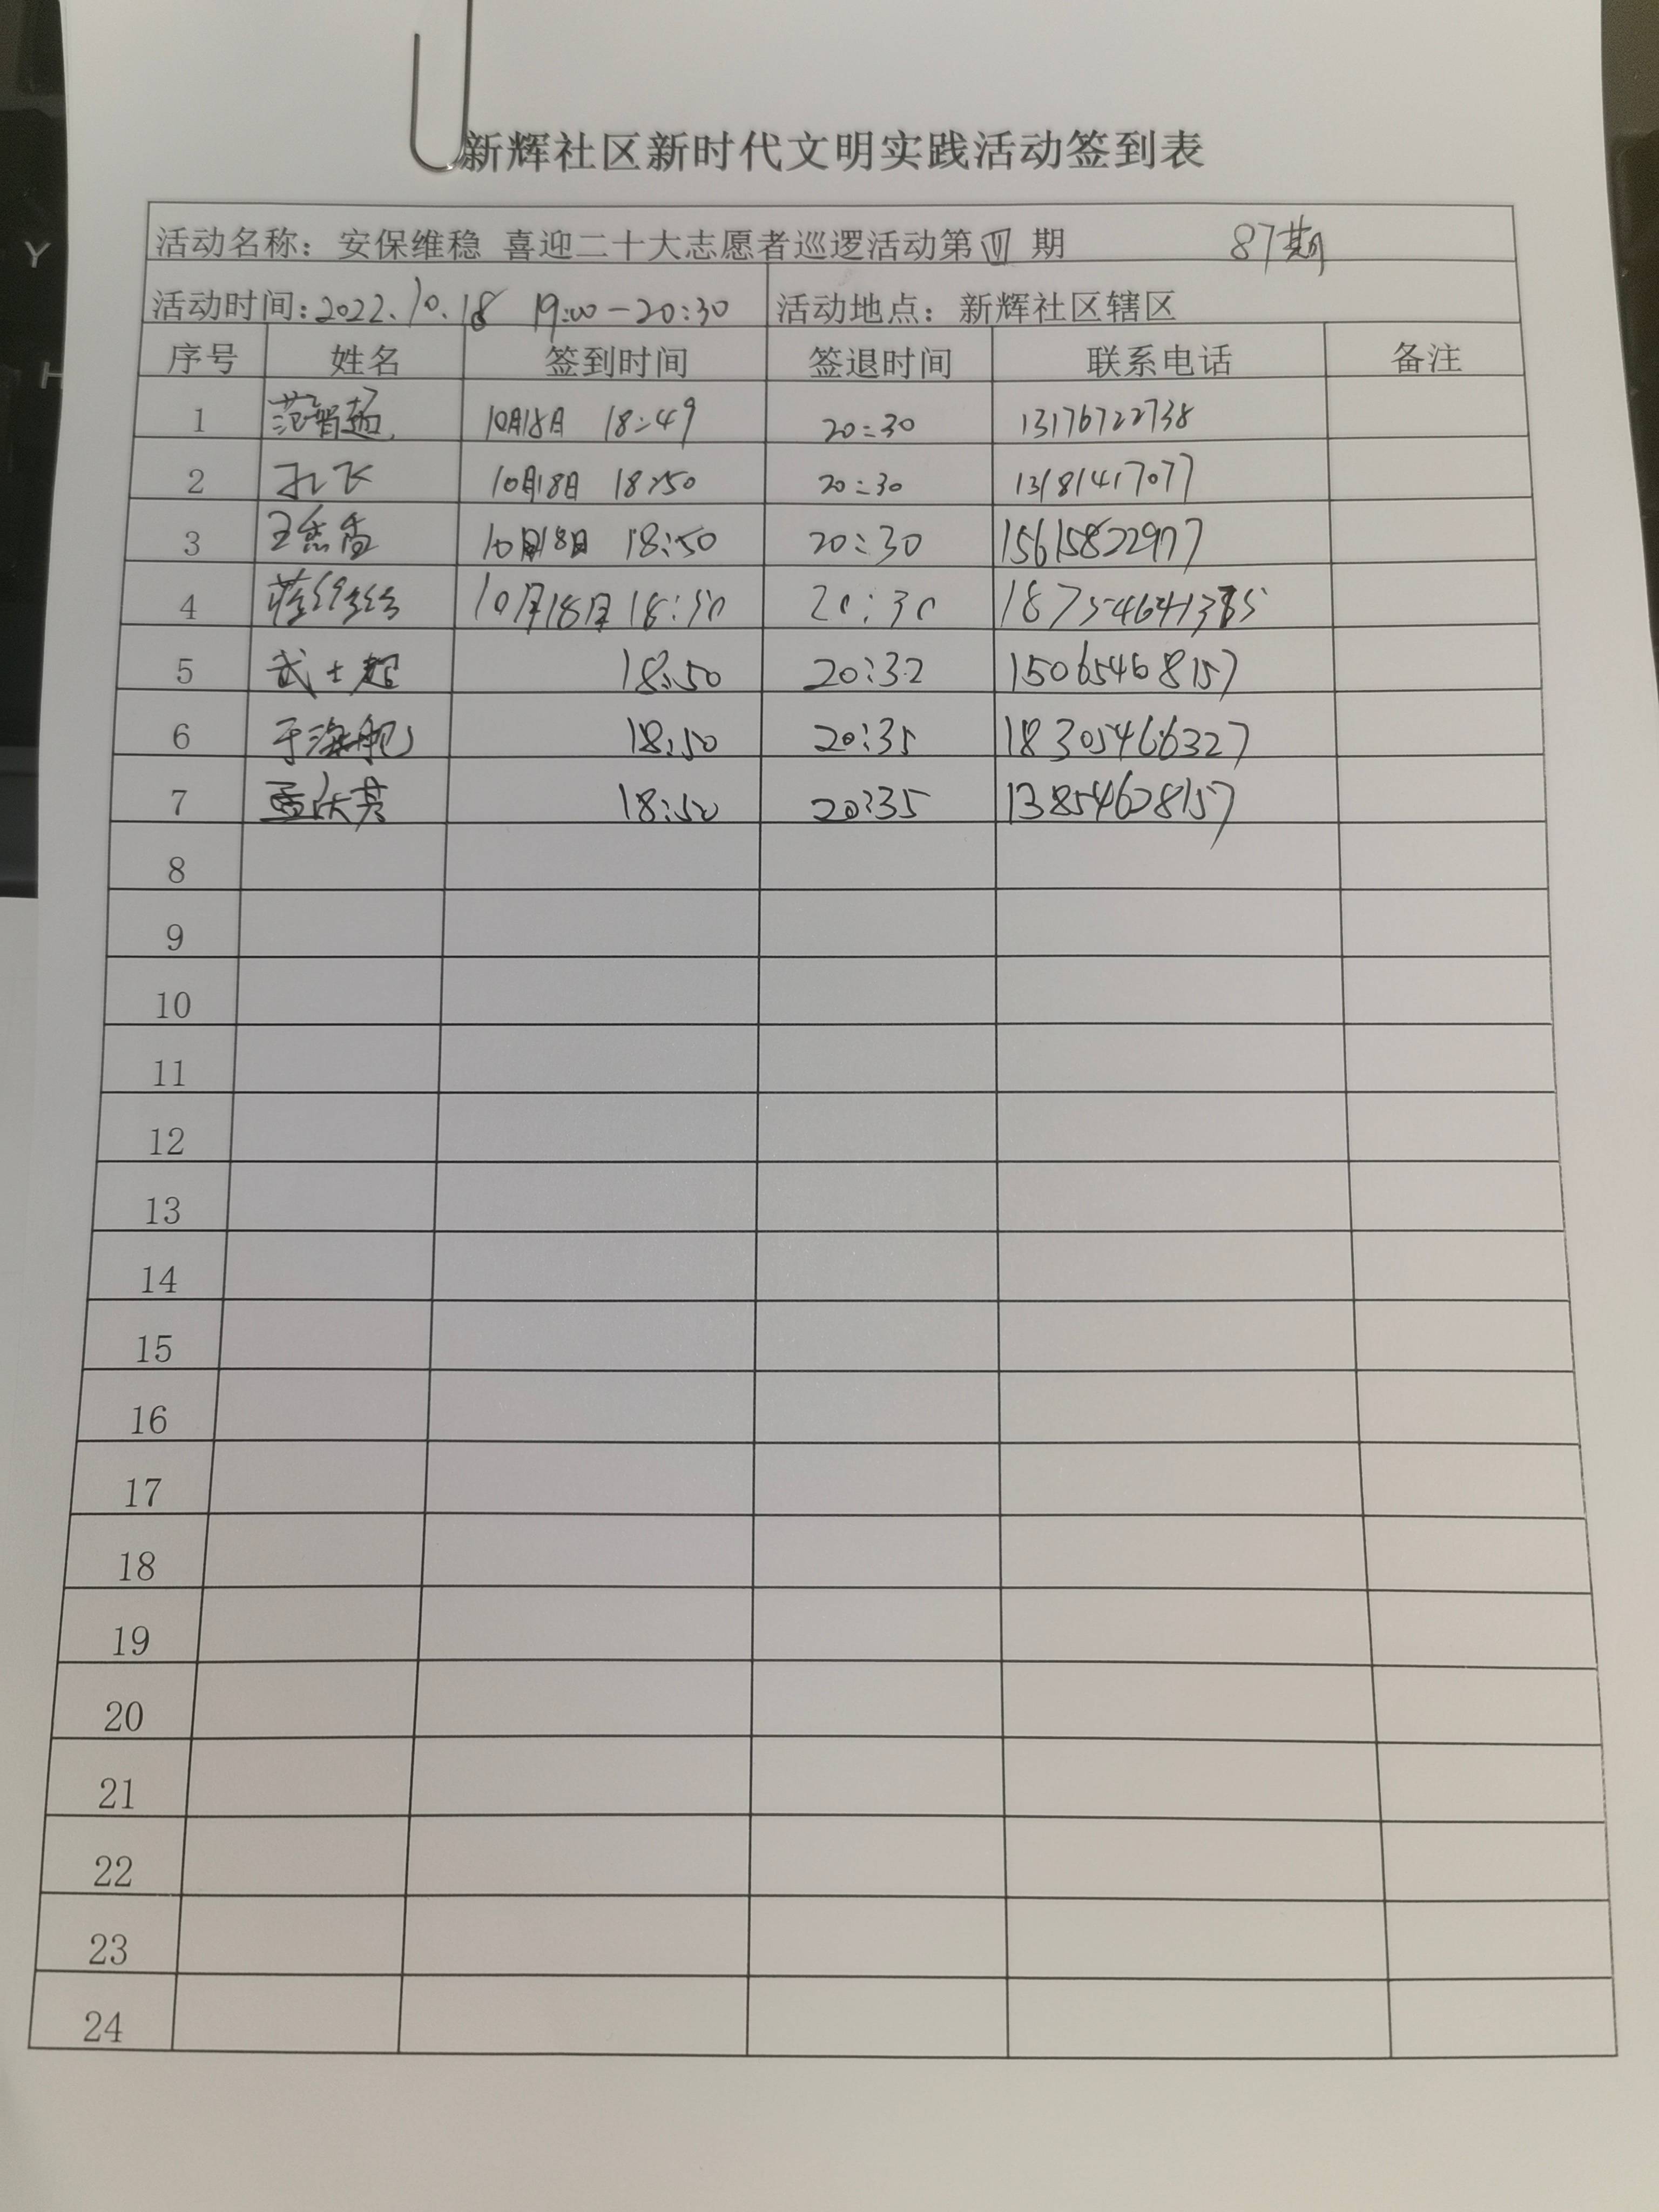 新辉社区新时代文明实践活动签到表
活动名称：安保维稳 喜迎二十大志愿者巡逻活动第 期 87期
活动时间：2022.10.18 19:00-20:30 活动地点：新辉社区辖区
序号 姓名 签到时间 签退时间 联系电话 备注
1 范智超 10月18日 18:49 20:30 13176722738
2 孔飞 10月18日 18:50 20:30 13181417077
3 10月18日 18:50 20:30 15615822977
4 10月18日 18:50 20:30
5 武士超 18:50 20:32 15065468157
6 于海舰 18:50 20:35 18305466327
7 孟庆芸 18:50 20:35 13854628157
8
9
10
11
12
13
14
15
16
17
18
19
20
21
22
23
24
Y
H